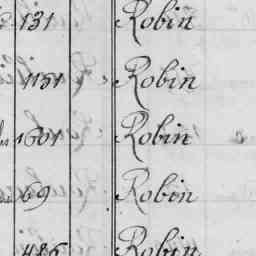 131 Robin
1151 Robin
1601 Robin
69 Robin
486 Robin